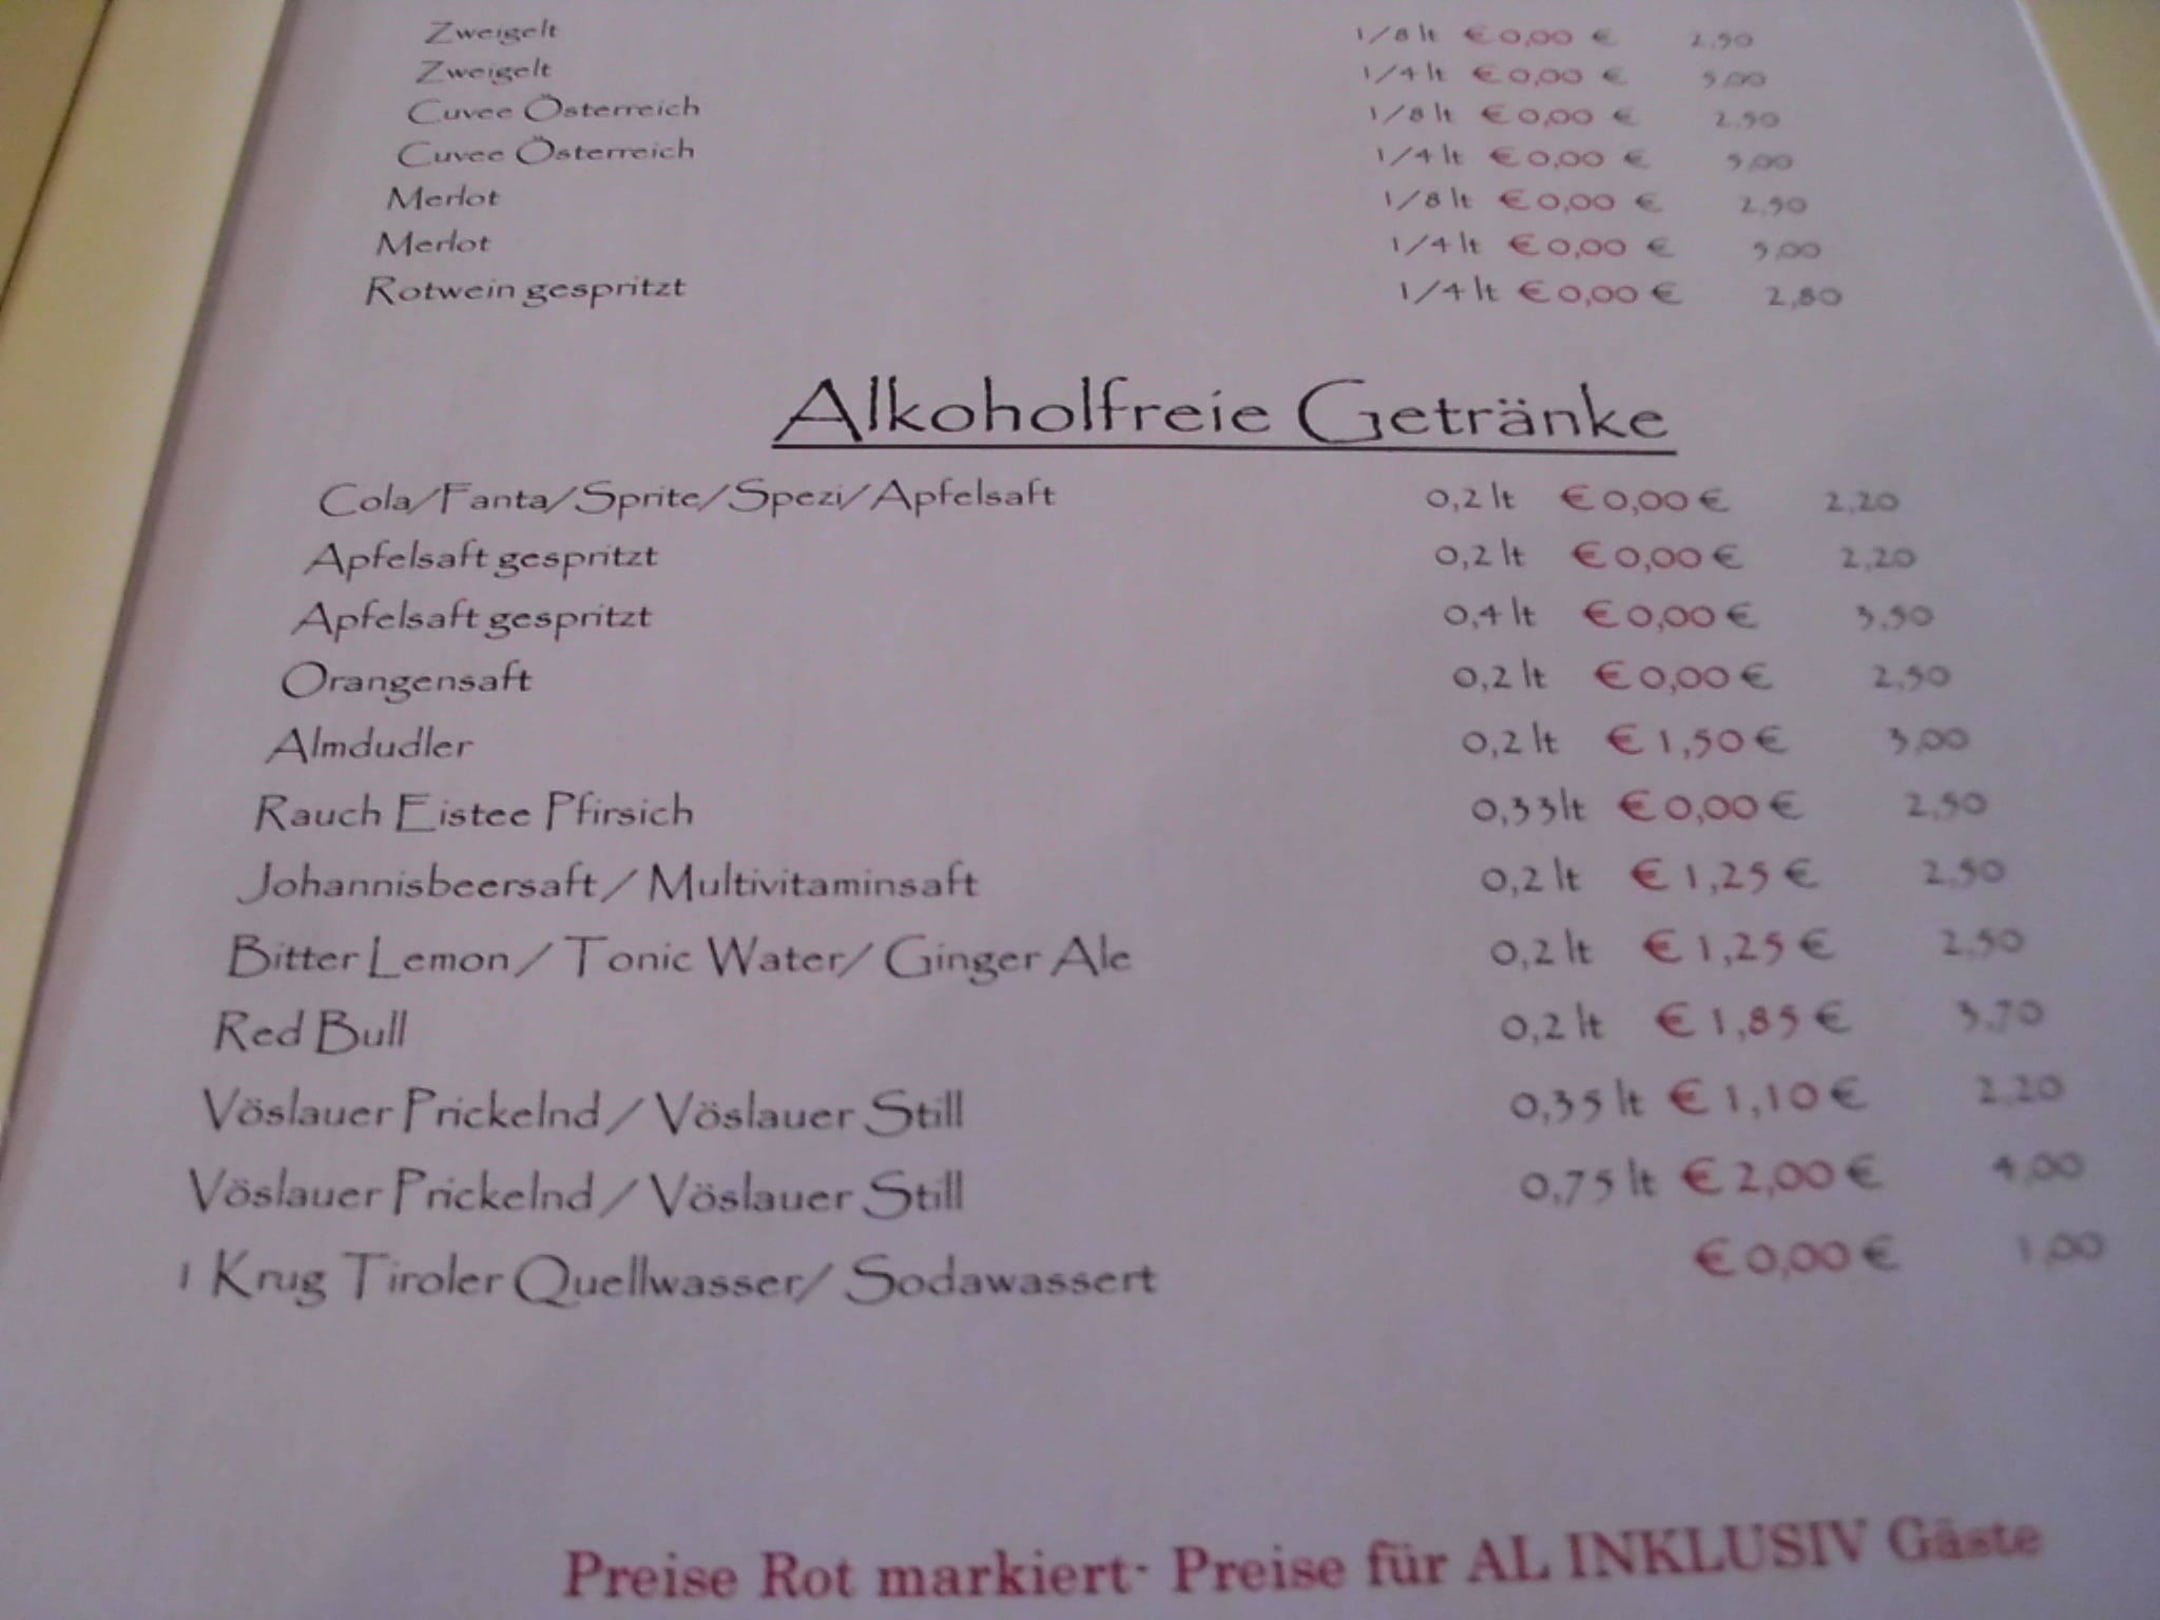 Zweigelt 1/8 lt € 0,00 € 2,50
Zweigelt 1/4 lt € 0,00 € 5,00
Cuvee Österreich 1/8 lt € 0,00 € 2,50
Cuvee Österreich 1/4 lt € 0,00 € 5,00
Merlot 1/8 lt € 0,00 € 2,50
Merlot 1/4 lt € 0,00 € 5,00
Rotwein gespritzt 1/4 lt € 0,00 € 2,80
Alkoholfreie Getränke
Cola/Fanta/Sprite/Spezi/Apfelsaft 0,2 lt € 0,00 € 2,20
Apfelsaft gespritzt 0,2 lt € 0,00 € 2,20
Apfelsaft gespritzt 0,4 lt € 0,00 € 3,50
Orangensaft 0,2 lt € 0,00 € 2,50
Almdudler 0,2 lt € 1,50 € 3,00
Rauch Eistee Pfirsich 0,33lt € 0,00 € 2,50
Johannisbeersaft / Multivitaminsaft 0,2 lt € 1,25 € 2,50
Bitter Lemon / Tonic Water/ Ginger Ale 0,2 lt € 1,25 € 2,50
Red Bull 0,2 lt € 1,85 € 3,70
Vöslauer Prickelnd / Vöslauer Still 0,35 lt € 1,10 € 2,20
Vöslauer Prickelnd / Vöslauer Still 0,75 lt € 2,00 € 4,00
1 Krug Tiroler Quellwasser/ Sodawassert € 0,00 € 1,00
Preise Rot markiert- Preise für AL INKLUSIV Gäste